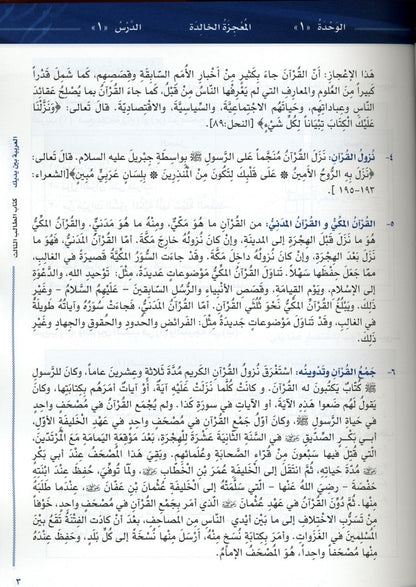 الوَحْدَةُ «١» المُعْجِزَةُ الخَالِدَةُ الدَّرْسُ «١»
هَذا الإعْجازِ: أنّ القُرْآنَ جاءَ بِكَثيرٍ مِنْ أخْبارِ الأُمَمِ السّابِقَةِ وقِصَصِهِم، كَما شَمِلَ قَدْراً
كَبيراً مِنَ العُلومِ والمعارِفِ التي لم يَعْرِفْها النّاسُ مِنْ قَبْلُ، كَما جاءَ القُرآنُ بما يُصْلِحُ عَقائِدَ
النّاسِ وعِباداتِهِم، وحَياتَهُم الاجْتِماعِيَّةَ، والسِّياسِيَّةَ، والاقْتِصادِيَّةَ. قالَ تَعالى: ﴿وَنَزَّلْنَا
عَلَيْكَ الْكِتَابَ تِبْيَاناً لِكُلِّ شَيْءٍ﴾ [النحل:٨٩].
٤- نُزولُ القُرْآنِ: نَزَلَ القُرْآنُ مُنَجَّماً عَلى الرَّسولِ ﷺ بِواسِطَةِ جِبْريلَ عليه السلام. قالَ تَعالى:
﴿نَزَلَ بِهِ الرُّوحُ الأَمِينُ ۞ عَلَى قَلْبِكَ لِتَكُونَ مِنْ الْمُنْذِرِينَ ۞ بِلِسَانٍ عَرَبِيٍّ مُبِينٍ﴾[الشعراء:
١٩٣-١٩٥ ].
٥- القُرْآنُ المَكِّيُّ و القُرْآنُ المَدَنِيُّ: من القُرْآنِ ما هو مَكِّيٌّ، ومِنْهُ ما هو مَدَنِيٌّ. والقُرْآنُ المَكِّيُّ
هُوَ ما نَزَلَ قَبْلَ الهِجْرَةِ إلى المدينَةِ، وإنْ كانَ نُزولُهُ خارِجَ مَكَّةَ. أمّا القُرْآنُ المَدَنِيُّ، فَهُوَ ما
نَزَلَ بَعْدَ الهِجْرَةِ، وإنْ كانَ نُزولُهُ داخِلَ مَكَّةَ. وقَدْ جاءَت السُّوَرُ المَكِّيَّةُ قَصيرَةً في الغالِبِ،
ممّا جَعَلَ حِفْظَها سَهْلاً. تَناوَلَ القُرْآنُ المَكِّيُّ مَوْضوعاتٍ عَديدَةً، مِثْلَ: تَوْحيدِ اللهِ، والدَّعْوَةِ
إلى الإسْلامِ، ويَوْمِ القِيامَةِ، وقَصَصِ الأنْبِياءِ والرُّسُلِ السّابِقينَ – عَلَيْهِمُ السَّلامُ – وغَيْرِ
ذلِكَ. ويَبْلُغُ القُرْآنُ المَكِّيُّ نَحْوَ ثُلُثَي القُرْآنِ. أمّا القُرْآنُ المَدَنِيُّ، فَجاءَتْ سُوَرُهُ وآياتُهُ طَويلَةً
في الغالِبِ، وقَدْ تَناوَلَ مَوْضوعاتٍ جَديدَةً مِثْلَ: الفَرائِضِ والحدودِ والحُقوقِ والجِهادِ وغَيْرِ
ذلِكَ.
٦- جَمْعُ القُرْآنِ وتَدْوينُه: اسْتَغْرَقَ نُزولُ القُرْآنِ الكَريمِ مُدَّةَ ثَلاثَةٍ وعِشْرينَ عاماً، وكانَ للرَّسولِ
ﷺ كُتّابٌ يَكْتُبونَ لَهُ القُرْآنَ. و كانَتْ كُلَّما نَزَلَتْ عَلَيْهِ آيَةٌ، أَوْ آياتٌ أمَرَهُم بِكِتابَتِها، وكانَ
يَقولُ لَهُم ضَعوا هذِهِ الآيَةَ، أو الآياتِ في سورَةِ كَذا. ولَم يُجْمَع القُرْآنُ في مُصْحَفٍ واحِدٍ
في حَياةِ الرَّسولِ ﷺ، وكانَ أوَّلُ جَمْعٍ للقُرْآنِ في مُصْحَفٍ واحِدٍ في عَهْدِ الخَليفَةِ الأوَّلِ،
أبي بَكْرٍ الصِّدّيقِ رضي الله عنه، في السَّنَةِ الثّانِيَةَ عَشْرَةَ لِلْهِجْرَةِ، بَعْدَ مَوْقِعَةِ اليَمامَةِ مَعَ المُرْتَدّينَ،
الَّتي قُتِلَ فيها سَبْعونَ مِنْ قُرّاءِ الصَّحابَةِ وعُلَمائِهِم. وبَقِيَ هَذا المُصْحَفُ عِنْدَ أبي بَكْرٍ
رضي الله عنه مُدَّةَ حَياتِهِ، ثُمَّ انْتَقَلَ إلى الخَليفَةِ عُمَرَ بْنِ الخَطّابِ رضي الله عنه، ولمّا تُوُفِّيَ، حُفِظَ عِنْدَ ابْنَتِهِ
حَفْصَةَ - رضي اللهُ عَنْها – الَّتي سَلَّمَتْهُ إلى الخَليفَةِ عُثْمانَ بْنِ عَفّانَ رضي الله عنه، عِنْدَما طَلَبَهُ
مِنْها. ثُمَّ دُوِّنَ القُرْآنُ في عَهْدِ عُثْمانَ رضي الله عنه الَّذي أمَرَ بِجَمْعِ القُرْآنِ في مُصْحَفٍ واحِدٍ، خَوْفاً
مِنْ تَسَرُّبِ الاخْتِلافِ إلى ما بَيْنَ أيْدي النّاسِ مِن المصاحِفِ، بَعْدَ أنْ كادَت الفِتْنَةُ تَقَعُ بَيْنَ
المسْلِمينَ في الغَزَواتِ. وأمَرَ بِكِتابَةِ نُسَخٍ مِنْهُ، أرْسَلَ مِنْها نُسْخَةً إلى كُلِّ بَلَدٍ، وحَفِظَ عِنْدَهُ
مِنْها مُصْحَفاً واحِداً، هُوَ المُصْحَفُ الإمامُ.
العربية بين يديك كتاب الطالب الثالث
٣